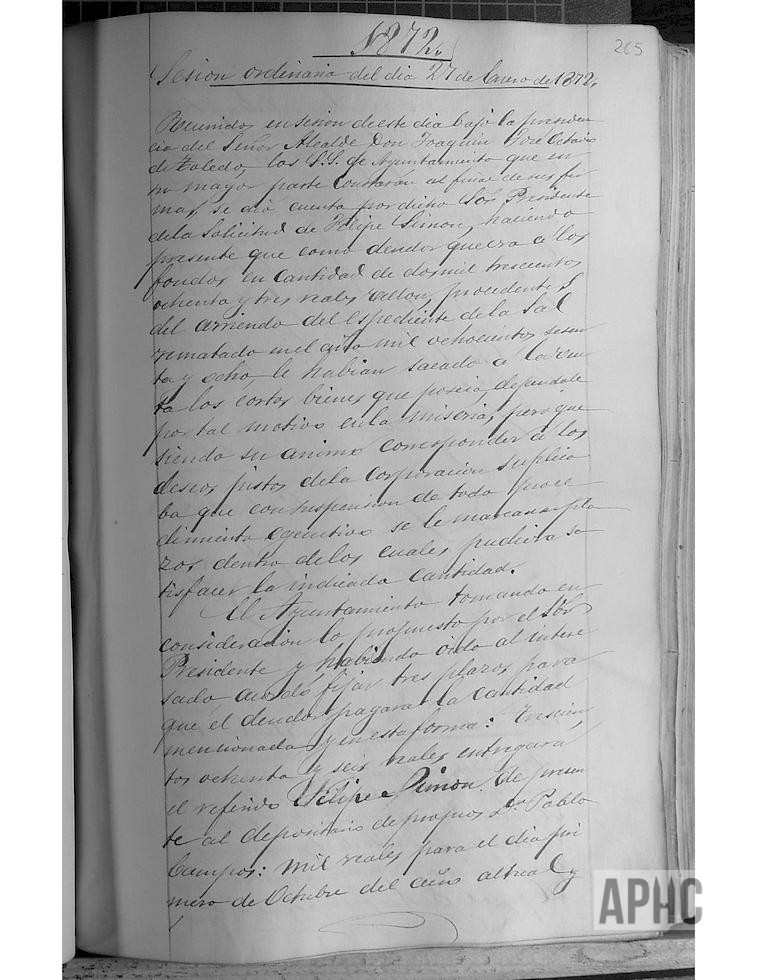 265
1872.
Sesion ordinaria del dia 27 de Enero de 1872.
Reunidos en sesion de este dia bajo la presiden
cia del Señor Alcalde Don Joaquin José Octavio
de Toledo, los S.S. de Ayuntamiento que en
su mayor parte constarán al final de sus fir
mas, se dió cuenta por dicho Sor Presidente
de la solicitud de Felipe Simon, haciendo
presente que como deudor que era á los
fondos en cantidad de dos mil trescientos
ochenta y tres reales vellon, procedentes
del arriendo del Espediente de la Sal
rematado en el año mil ochocientos sesen
ta y ocho, le habian sacado á la ven
ta los cortos bienes que poseia, dejandole
por tal motivo en la miseria, pero que
siendo su animo corresponder á los
deseos justos de la Corporacion suplica
ba que con suspension de todo proce
dimiento egecutivo se le marcasen pla
zos dentro de los cuales pudiera sa
tisfacer la indicada cantidad.
El Ayuntamiento tomando en
consideracion lo propuesto por el Sor
Presidente y habiendo oido al intere
sado acordó fijar tres plazos para
que el deudor pagara la cantidad
mencionada y en esta forma: Trescien
tos ochenta y seis reales entregará
el referido Felipe Simon de presen
te al depositario de propios Dn Pablo
Campos: mil reales para el dia pri
mero de Octubre del año actual y
APHC